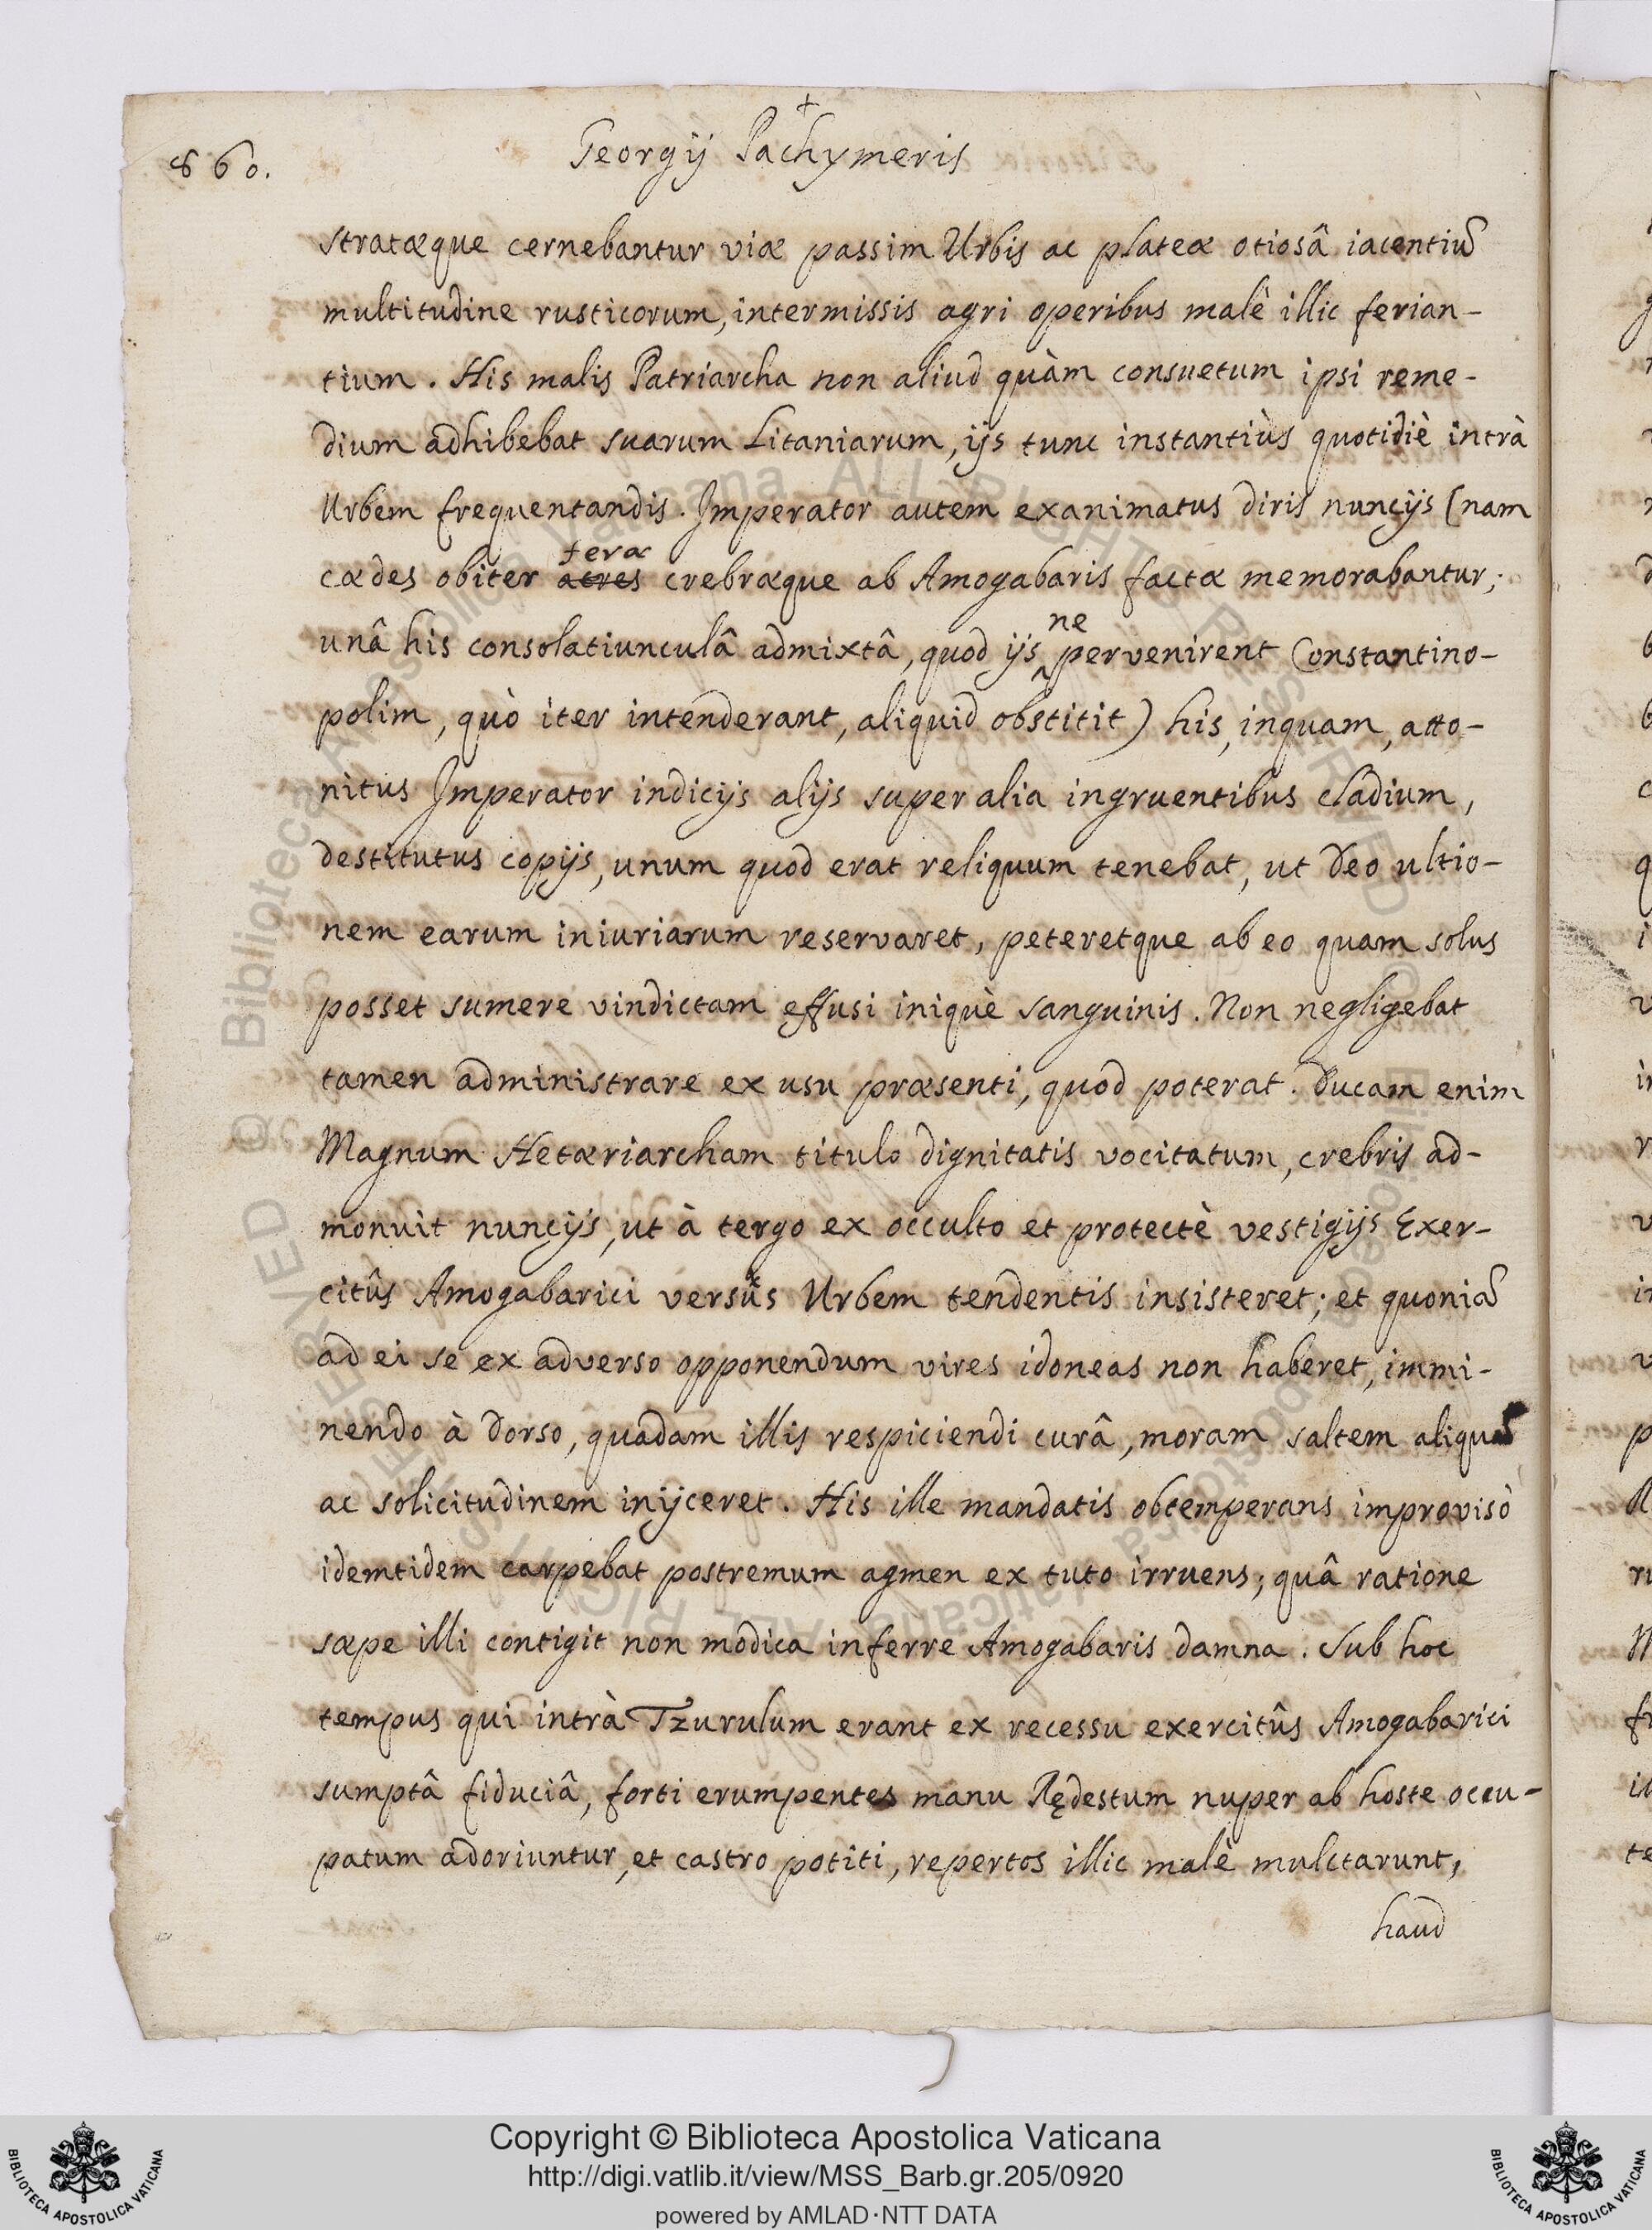 860.
+
Georgij Pachymeris
stratæque cernebantur viæ passim Urbis ac plateæ otiosâ iacentiũ
multitudine rusticorum, intermissis agri operibus malè illic ferian-
tium. His malis Patriarcha non aliud quàm consuetum ipsi reme-
dium adhibebat suarum Litaniarum, ijs tunc instantiùs quotidiè intrà
Urbem frequentandis. Imperator autem exanimatus diris nuncijs (nam
feræ
cædes obiter atres crebræque ab Amogabaris factæ memorabantur;
ne
unâ his consolatiunculâ admixtâ, quod ijs ‸ pervenirent Constantino-
polim, quò iter intenderant, aliquid obstitit) his, inquam, atto-
nitus Imperator indicijs alijs super alia ingruentibus cladium,
destitutus copijs, unum quod erat reliquum tenebat, ut Deo ultio-
nem earum iniuriarum reservaret, peteretque ab eo quam solus
posset sumere vindictam effusi iniquè sanguinis. Non negligebat
tamen administrare ex usu præsenti, quod poterat. Ducam enim
Magnum Hetæriarcham titulo dignitatis vocitatum, crebris ad-
monuit nuncijs, ut à tergo ex occulto et protectè vestigijs Exer-
citûs Amogabarici versùs Urbem tendentis insisteret; et quoniã
ad ei se ex adverso opponendum vires idoneas non haberet, immi-
nendo à dorso, quadam illis respiciendi curâ, moram saltem aliquã
ac solicitudinem inijceret. His ille mandatis obtemperans improvisò
identidem carpebat postremum agmen ex tuto irruens; quâ ratione
sæpe illi contigit non modica inferre Amogabaris damna. Sub hoc
tempus qui intrà Tzurulum erant ex recessu exercitûs Amogabarici
sumptâ fiduciâ, forti erumpentes manu Rędestum nuper ab hoste occu-
patum adoriuntur, et castro potiti, repertos illic malè mulctarunt,
haud
Copyright © Biblioteca Apostolica Vaticana
http://digi.vatlib.it/view/MSS_Barb.gr.205/0920
powered by AMLAD·NTT DATA
BIBLIOTECA APOSTOLICA VATICANA
BIBLIOTECA APOSTOLICA VATICANA